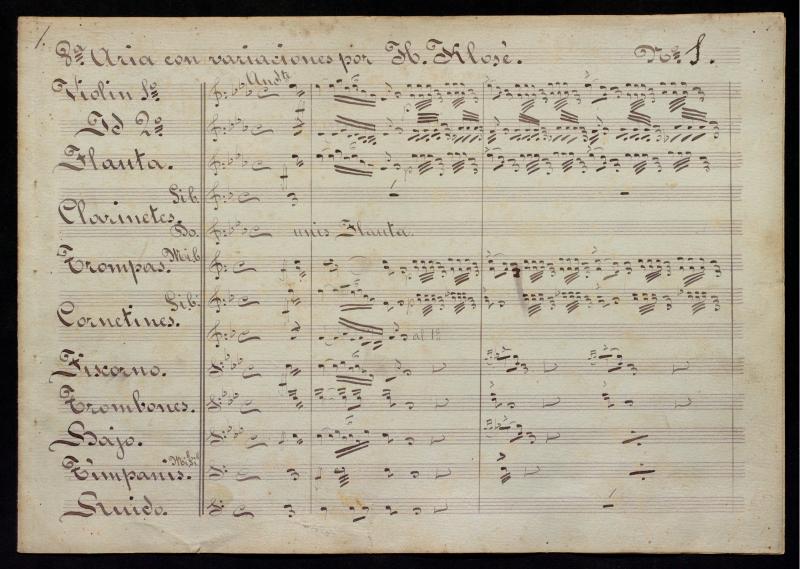 1.
8ª Aria con variaciones por H. Klosé. Nº 1.
Andte
Violin 1º
Id 2º
Flauta.
Sib.
Clarinetes.
Do. unis Flauta.
Trompas. Mib
Sib.
Cornetines.
al 1º
Fiscorno.
Trombones.
Bajo.
Timpanis.
Ruido.